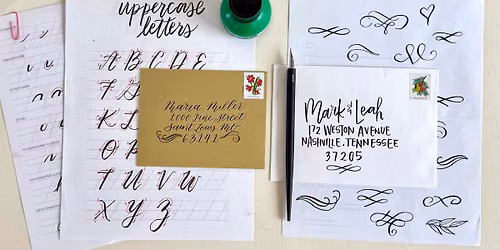 uppercase
letters
A B C D E
F G
K L
O P
T U V W
X Y Z
Maria Miller
1000 Pine Street
Saint Louis, Mo
63141
Mark & Leah
172 WESTON AVENUE
NASHVILLE, TENNESSEE
37205